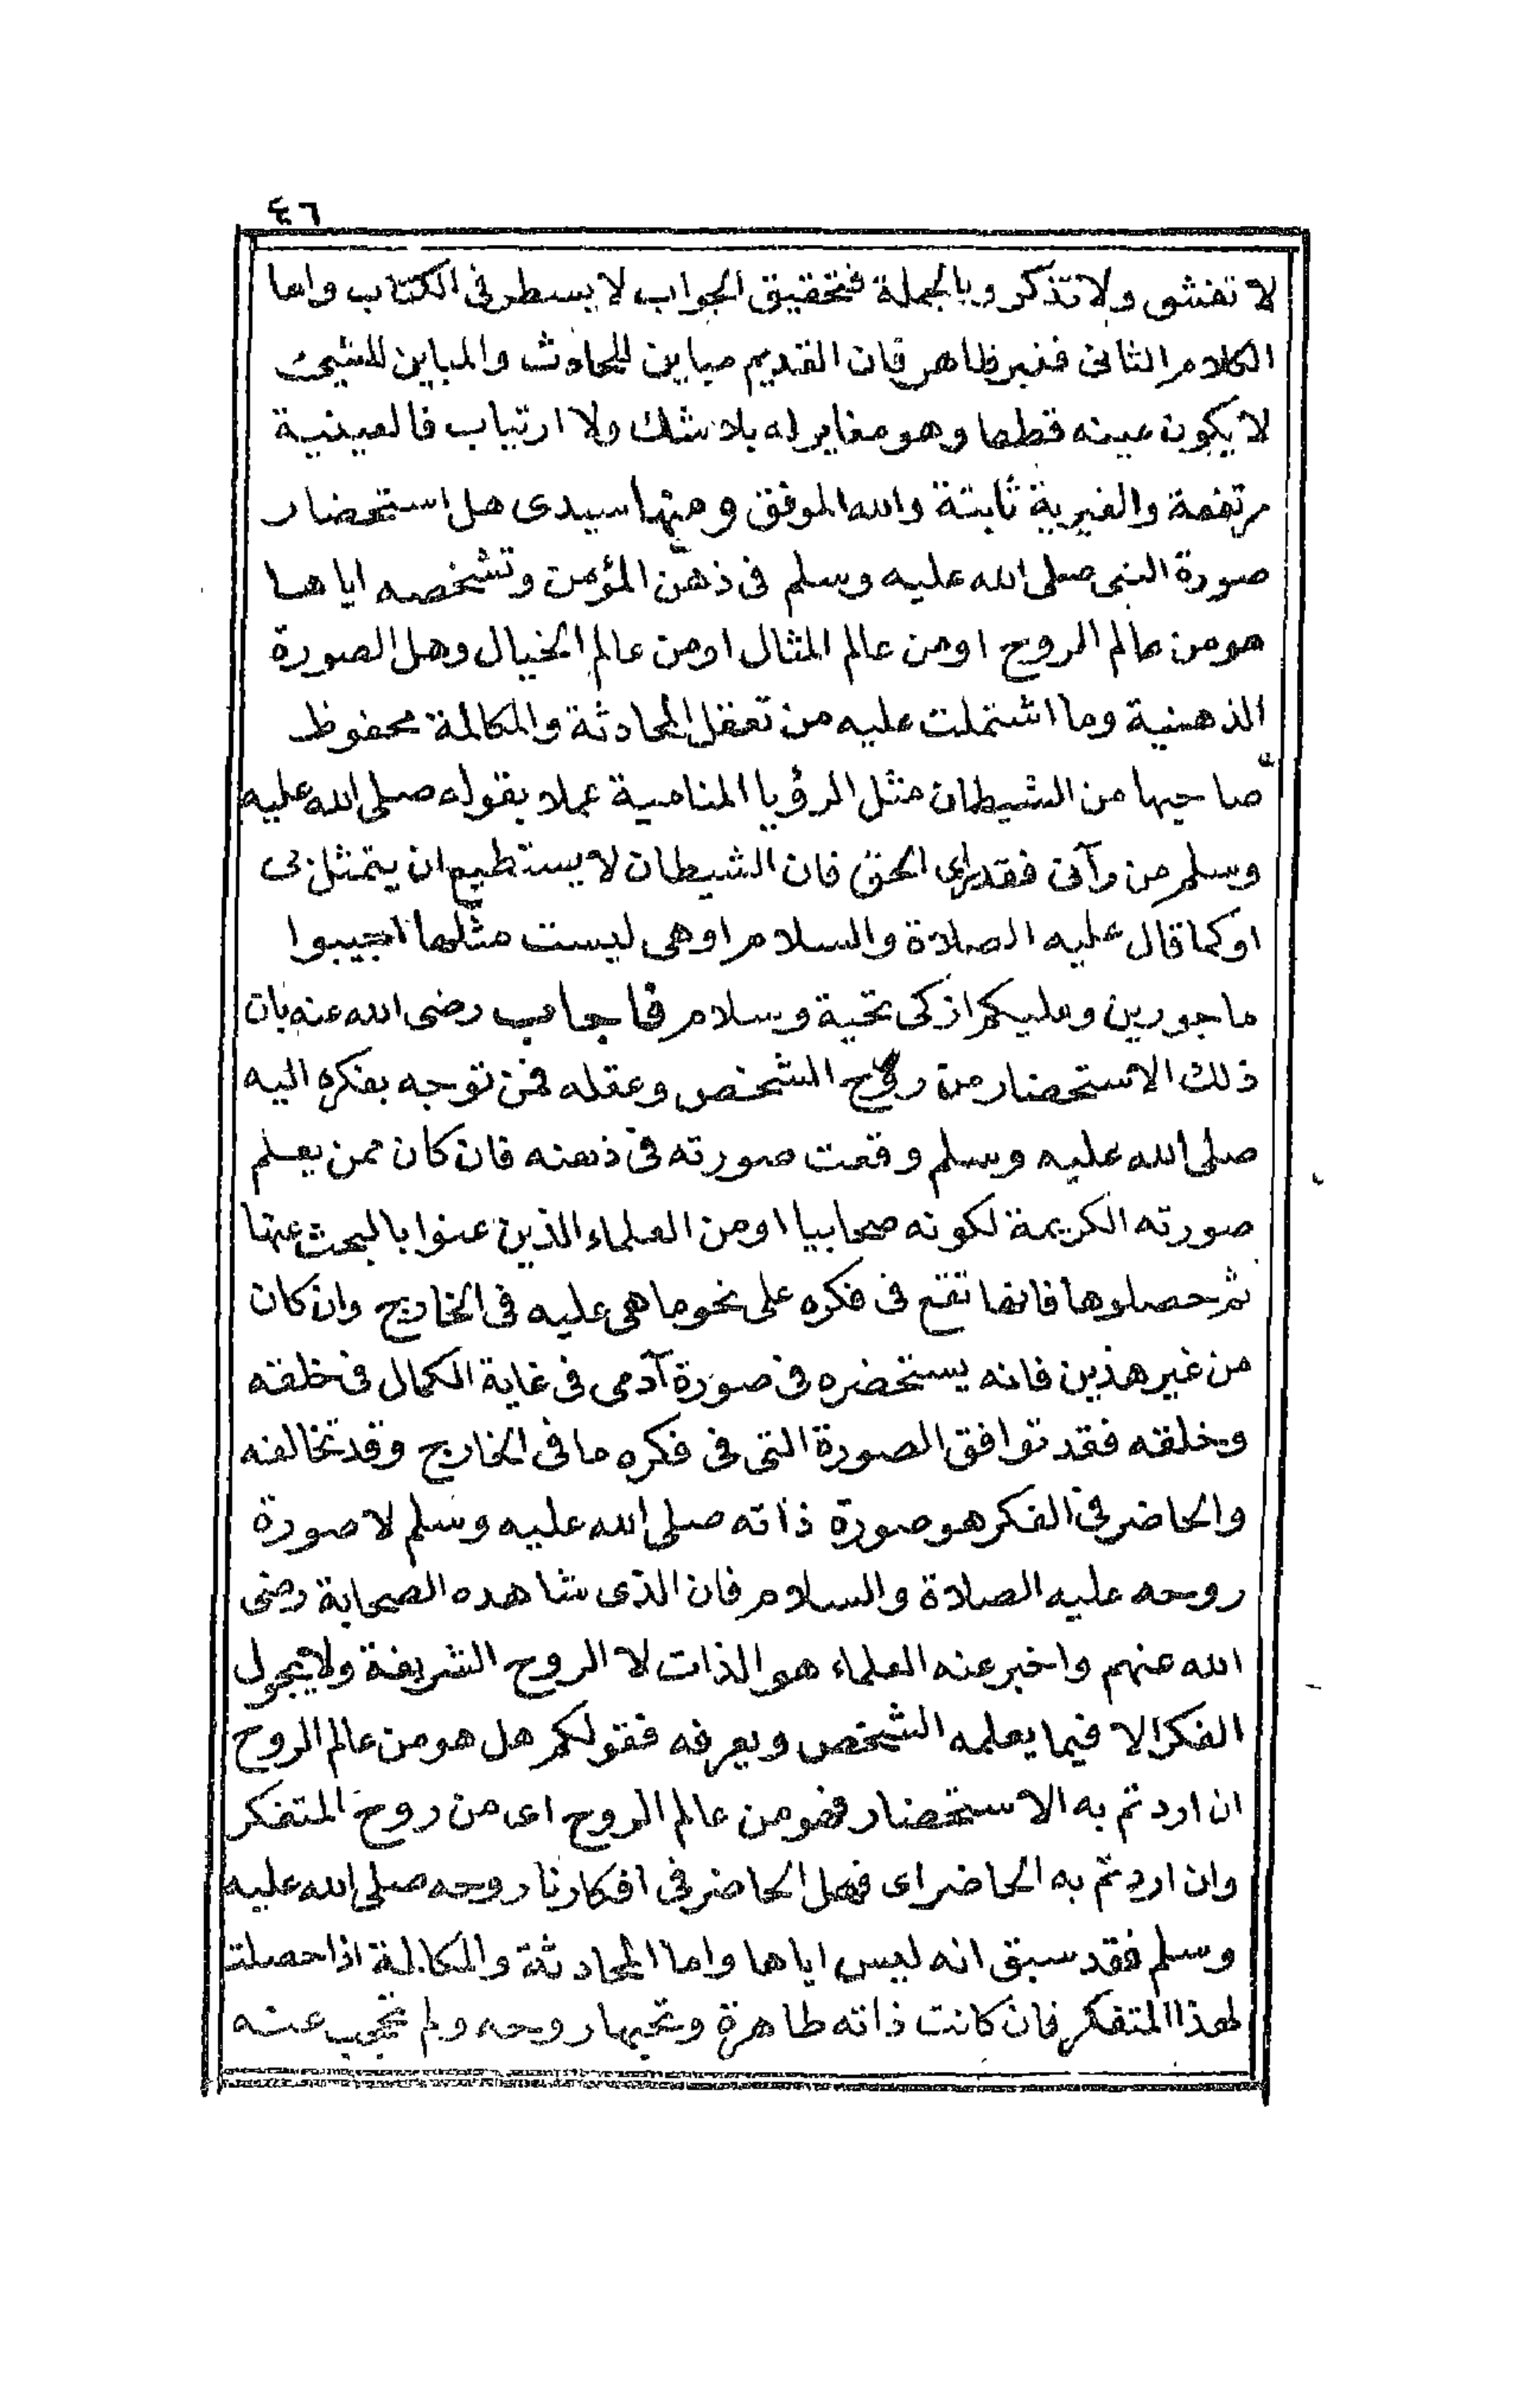 ٤٦
لا تفشى ولا تذكر وبالجملة فتحقيق الجواب لا يسطر فى الكتاب واما
الكلام الثانى فغير ظاهر فان القديم مباين للحادث والمباين للشيئ
لا يكون عينه قطعا وهو مغاير له بلا شك ولا ارتياب فالعينية
مرتفعة والغيرية ثابتة والله الموفق ومنها سيدى هل استحضار
صورة النبى صلى الله عليه وسلم فى ذهن المؤمن وتشخصه اياها
هو من عالم الروح او من عالم المثال او من عالم الخيال وهل الصورة
الذهنية وما اشتملت عليه من تعقل المحادثة والمكالمة محفوظ
صاحبها من الشيطان مثل الرؤيا المنامية عملا بقوله صلى الله عليه
وسلم من رآنى فقد راى الحق فان الشيطان لا يستطيع ان يتمثل بى
او كما قال عليه الصلاة والسلام او هى ليست مثلها اجيبوا
ماجورين وعليكم ازكى تحية وسلام فاجاب رضى الله عنه بان
ذلك الاستحضار من روح الشخص وعقله فمن توجه بفكره اليه
صلى الله عليه وسلم وقعت صورته فى ذهنه فان كان ممن يعلم
صورته الكريمة لكونه صحابيا او من العلماء الذين عنوا بالبحث عنها
ثم حصلوها فانها تقع فى فكره على نحو ما هى عليه فى الخارج وان كان
من غير هذين فانه يستحضره فى صورة آدمى فى غاية الكمال فى خلقه
وخلقه فقد توافق الصورة التى فى فكره ما فى الخارج وقد تخالفه
والحاضر فى الفكر هو صورة ذاته صلى الله عليه وسلم لا صورة
روحه عليه الصلاة والسلام فان الذى شاهده الصحابة رضى
الله عنهم واخبر عنه العلماء هو الذات لا الروح الشريفة ولا يجول
الفكر الا فيما يعلمه الشخص ويعرفه فقولكم هل هو من عالم الروح
ان اردتم به الاستحضار فهو من عالم الروح اى من روح المتفكر
وان اردتم به الحاضر اى فهل الحاضر فى افكارنا روحه صلى الله عليه
وسلم فقد سبق انه ليس اياها واما المحادثة والمكالمة اذا حصلت
لهذا المتفكر فان كانت ذاته طاهرة وتحبها روحه ولم تحجب عنه